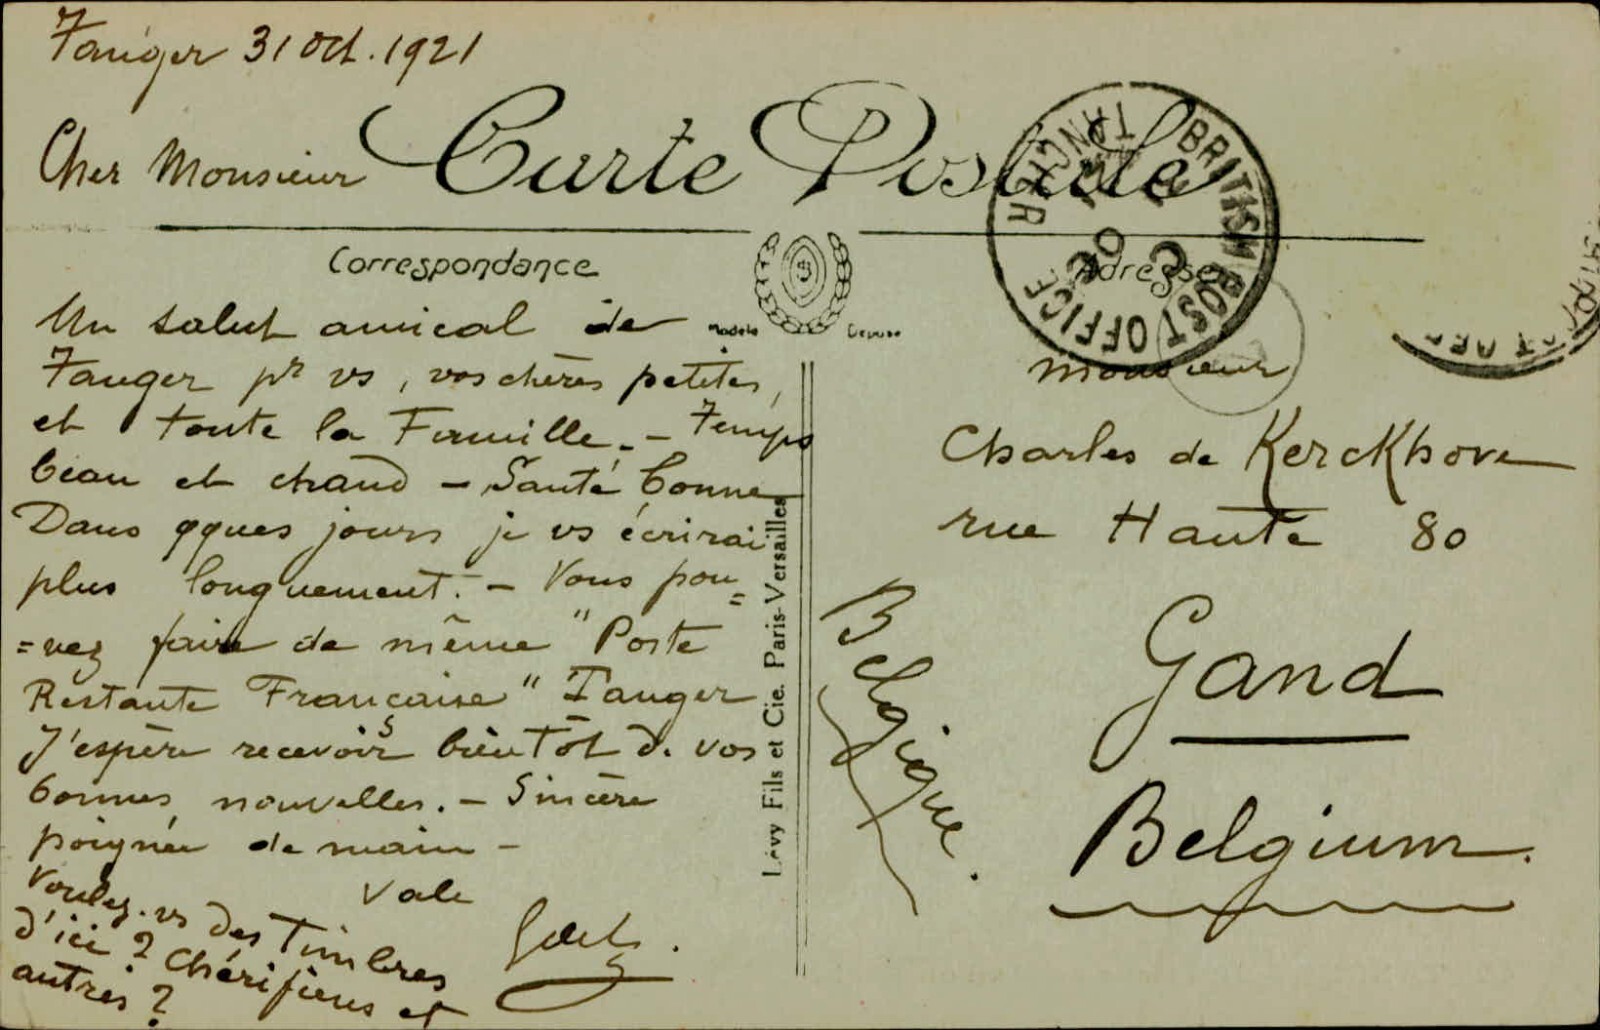 Tanger 31 Oct. 1921
Cher Monsieur
Carte Postale
Correspondance
Adresse
Modèle Déposé
Un salut amical de
Tanger pr vs, vos chères petites,
et toute la Famille. - Temps
beau et chaud - Santé bonne
Dans qques jours je vs écrirai
plus longuement. - Vous pou=
=vez faire de même "Poste
Restante Française" Tanger
J'espère recevoir bientôt d. vos
bonnes nouvelles. - Sincère
poignée de main -
Vale
Voulez-vs des Timbres
d'ici ? Chérifiens et
autres ?
Lévy Fils et Cie. Paris-Versailles
BRITISH POST OFFICE
TANGIER
Monsieur
Charles de Kerckhove
rue Haute 80
Gand
Belgium.
Belgique.